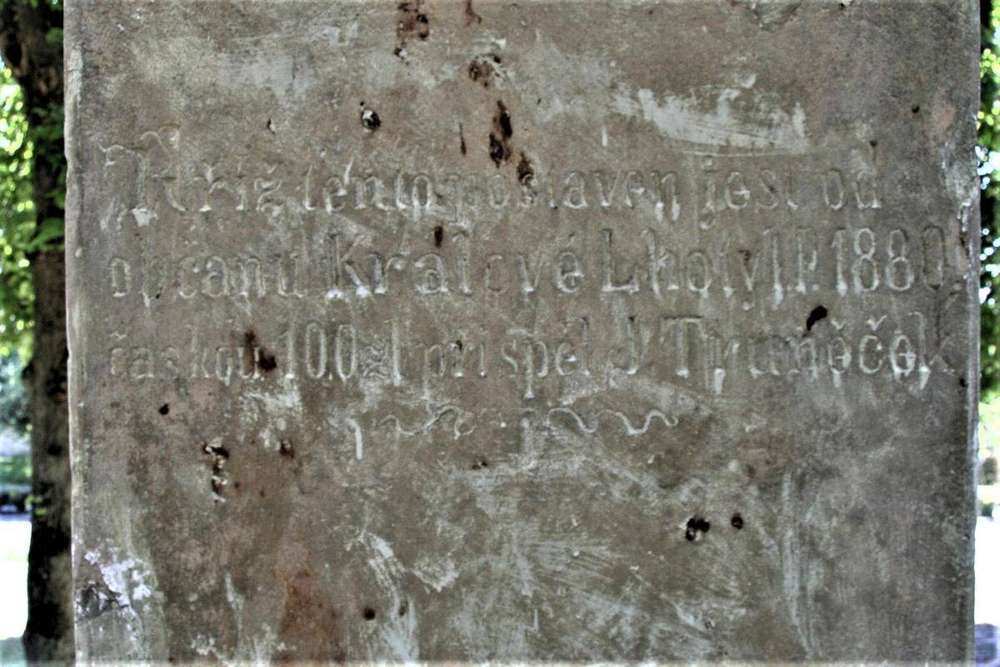 Kříž tento postaven jest od
občanů Králové Lhoty L.P. 1880,
částkou 100 zl při spěl J Truněček